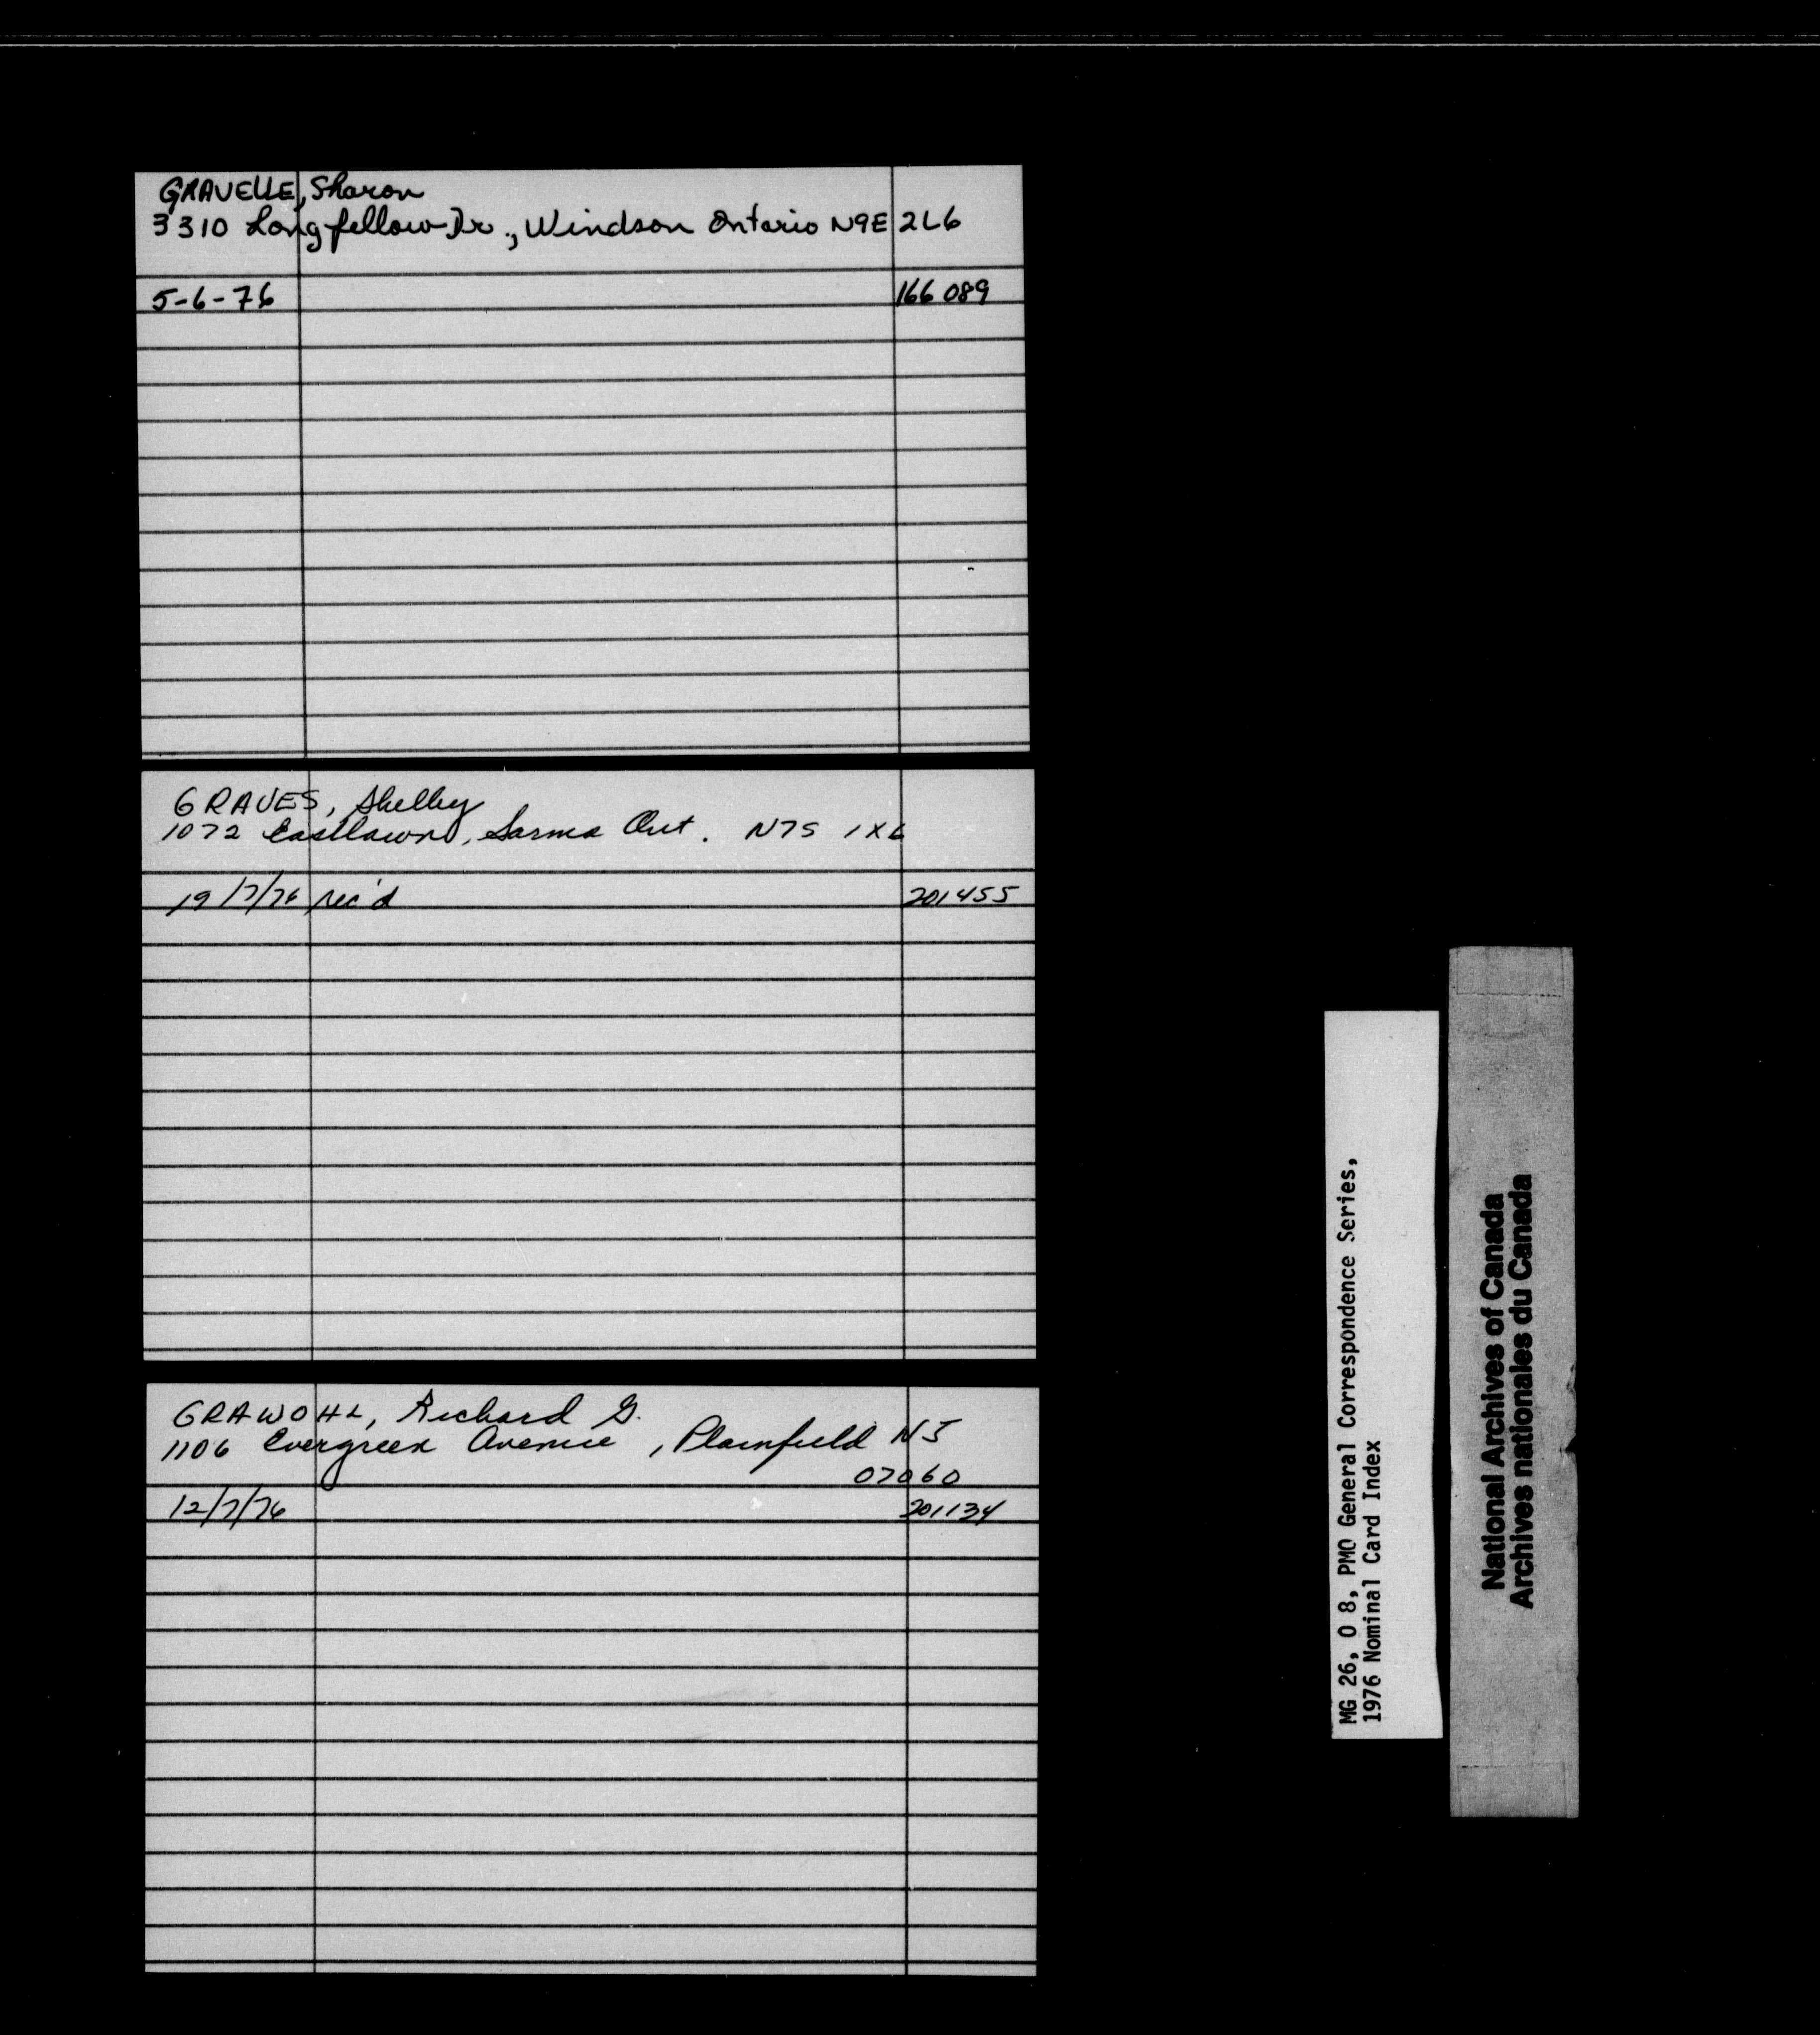 GRAVELLE, Sharon
3310 Longfellow Dr., Windsor Ontario N9E 2L6
5-6-76 166 089
GRAVES, Shelley
1072 Eastlawn, Sarnia Ont. N7S 1X6
19/7/76 rec'd 201455
GRAWOHL, Richard G.
1106 Evergreen Avenue, Plainfield NJ
07060
12/7/76 201134
MG 26, O 8, PMO General Correspondence Series,
1976 Nominal Card Index
National Archives of Canada
Archives nationales du Canada